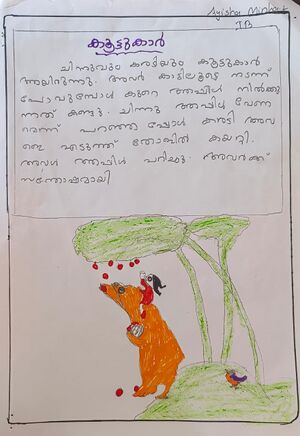 Ayisha Minhat
I B
കൂട്ടുകാർ
ചിന്നുവും കരടിയും കൂട്ടുകാർ
ആയിരുന്നു. അവർ കാട്ടിലൂടെ നടന്ന്
പോവുമ്പോൾ കുറെ ആപ്പിൾ നിൽക്കു
ന്നത് കണ്ടു. ചിന്നു ആപ്പിൾ വേണ
മെന്ന് പറഞ്ഞപ്പോൾ കരടി അവ
ളെ എടുത്ത് തോളിൽ കയറ്റി.
അവൾ ആപ്പിൾ പറിച്ചു. അവർക്ക്
സന്തോഷമായി